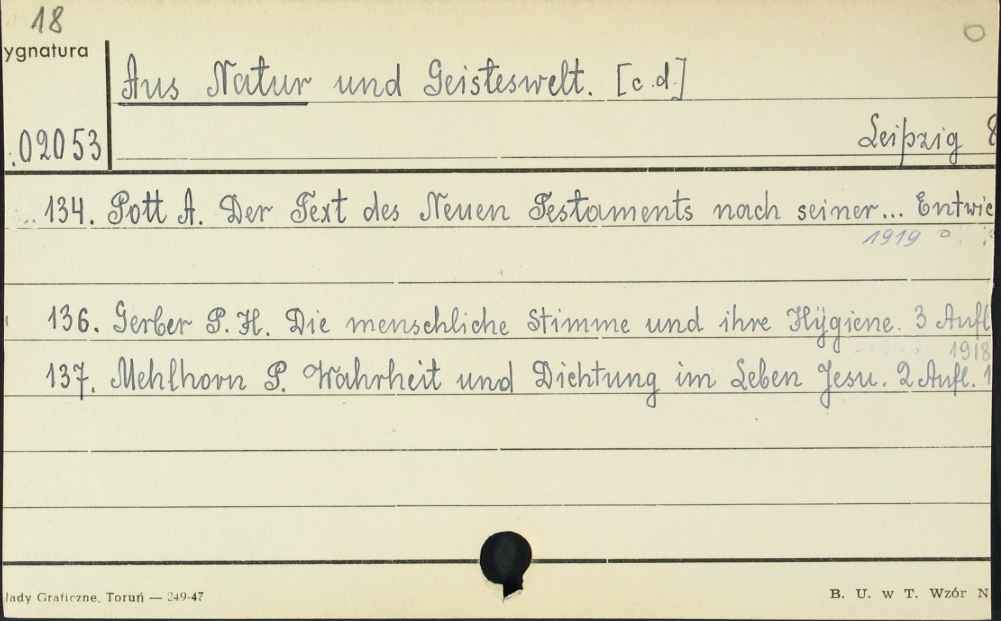 18
ygnatura
Aus Natur und Geisteswelt. [c.d.]
.02053
Leipzig 8
134. Pott A. Der Text des Neuen Testaments nach seiner... Entwic
1919
136. Gerber P. H. Die menschliche Stimme und ihre Hÿgiene. 3 Aufl
1918
137. Mehlhorn P. Wahrheit und Dichtung im Leben Jesu. 2 Aufl. 1
łady Graficzne, Toruń — 249-47
B. U. w T. Wzór N